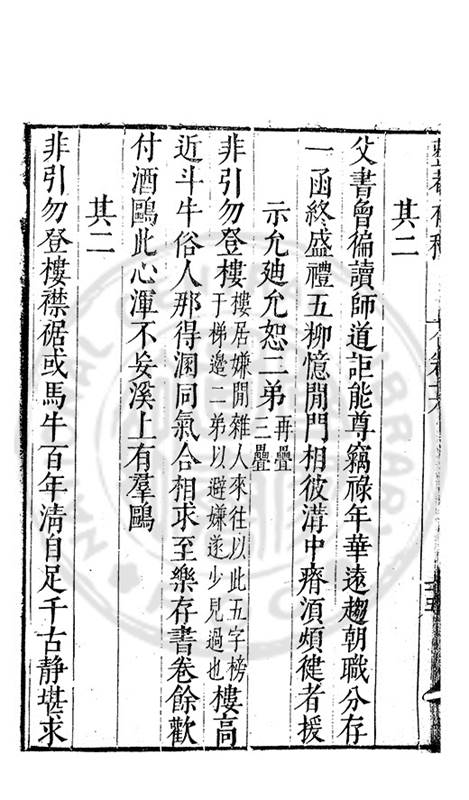 其二
父書曾徧讀師道詎能尊竊祿年華遠趨朝職分存
一函終盛禮五柳憶閒門相彼溝中瘠湏煩徤者援
示允廸允恕二弟再疊三疊
非引勿登樓樓居嫌閒雜人來往以此五字榜于梯邊二弟以避嫌遂少見過也樓高
近斗牛俗人那得溷同氣合相求至樂存書卷餘歡
付酒鷗此心渾不妄溪上有羣鷗
其二
非引勿登樓襟裾或馬牛百年淸自足千古静堪求